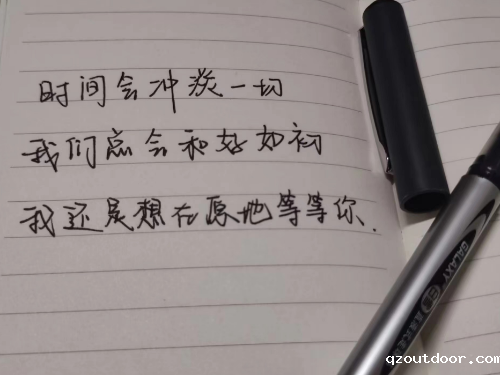 时间会冲淡一切
我们总会和好如初
我还是想在原地等等你.
GALAXY
qzoutdoor.com